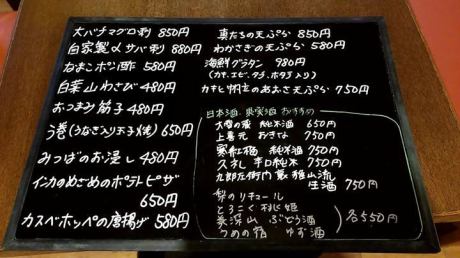 大バチマグロ刺 850円
自家製〆サバ刺 880円
なまこポン酢 580円
白葉山わさび 480円
おつまみ筋子 480円
う巻(うなぎ入り玉子焼) 650円
みつばのお浸し 480円
インカのめざめのポテトピザ
650円
カスベホッペの唐揚げ 580円
真たちの天ぷら 850円
わかさぎの天ぷら 580円
海鮮グラタン 980円
(カキ、エビ、タラ、ホタテ入り)
カキと帆立のあおさ天ぷら 750円
日本酒、果実酒 おすすめ
大雪の蔵 純米酒 650円
上喜元 おきな 750円
寒紅梅 純米酒 750円
久礼 辛口純米 750円
九郎左衛門 裏 雅山流
生酒 750円
梨のリキュール
とろこく桃姫
奥深山 ぶどう酒
うめの宿 ゆず酒
各550円